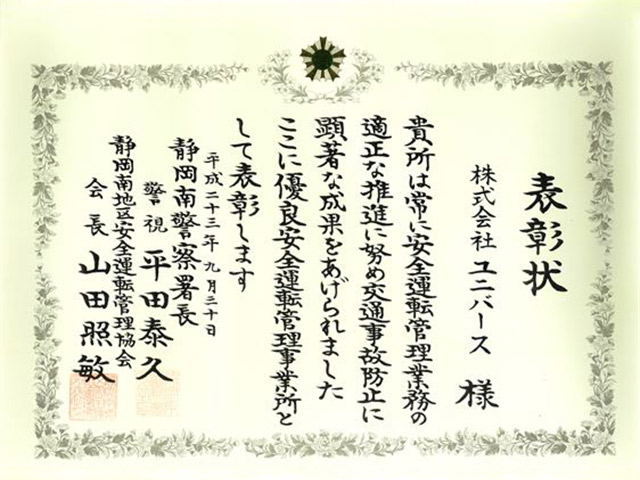 表彰状
株式会社 ユニバース 様
貴所は常に安全運転管理業務の
適正な推進に努め交通事故防止に
顕著な成果をあげられました
ここに優良安全運転管理事業所と
して表彰します
平成二十三年九月三十日
静岡南警察署長
警視 平田泰久
静岡南地区安全運転管理協会
会長 山田照敏